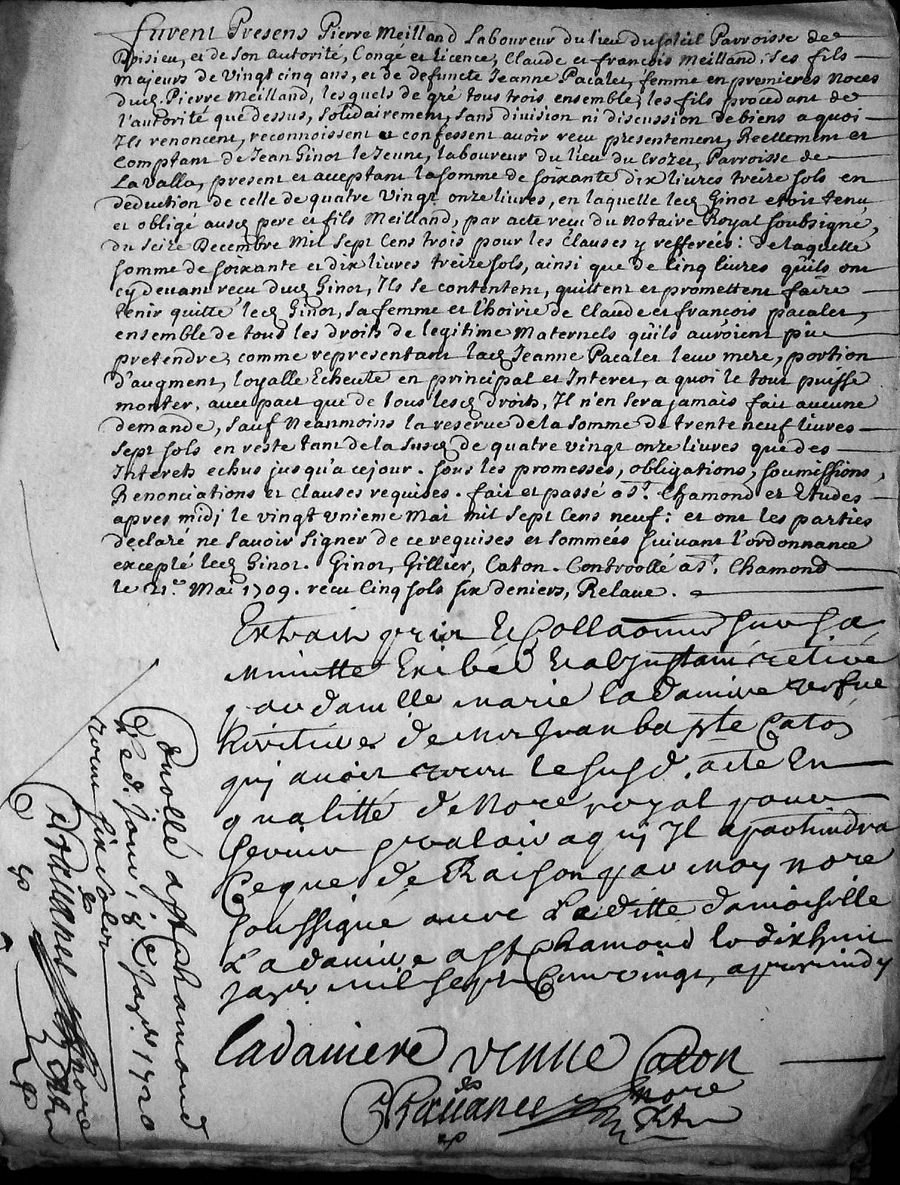 furent Presens Pierre Meilland Laboureur du lieu du soleil Parroisse de
Doisieu, et de son autorité, Congé et licence, Claude et françois Meilland ses fils
majeurs de vingt cinq ans, et de deffuncte Jeanne Pacalet, femme en premieres noces
dud. Pierre Meilland, lesquels de gré tous trois ensemble, les fils procedant de
l'autorité que dessus, solidairement, sans division ni discussion de biens a quoi
Ils renoncent, reconnoissent et confessent avoir recu presentement, Reellement et
Comptant de Jean Ginot le Jeune, laboureur du lieu du Crozet, Parroisse de
La valla, present et acceptant la somme de soixante dix livres treize sols en
deduction de celle de quatre vingt onze livres, en laquelle led. Ginot etoit tenu
et obligé ausd. pere et fils Meilland, par acte recu du Notaire Royal soubsigné,
du seize Decembre Mil sept Cens trois pour les Clauses y refferées: de laquelle
somme de soixante et dix livres treize sols, ainsi que de Cinq livres qu'ils ont
cy devant recu dud. Ginot, Ils se contentent, quittent et promettent faire
tenir quitte led. Ginot, sa femme et l'hoirie de Claude et françois pacalet,
ensemble de tous les droits de legitime Maternels qu'ils auroient pû
pretendre, comme representant lad. Jeanne Pacalet leur mere, portion
d'augment, loyalle Echeute en principal et Interet, a quoi le tout puisse
monter, avec pact que de tous lesd. droits, Il n'en sera jamais fait aucune
demande, sauf Neanmoins la reserve de la somme de trente neuf livres
sept sols en reste tant de la susd. de quatre vingt onze livres que des
Interets echus jusqu'a ce jour. sous les promesses, obligations, soumissions,
Renonciations et clauses requises. fait et passé a St. Chamond ez Etudes
apres midj le vingt unieme Mai mil sept Cens neuf: et ont les parties
declaré ne savoir signer de ce requises et sommées suivant l'ordonnance
excepté led. Ginot. Ginot, Gillier, Caton. Controollé a St. Chamond
le 21.me Mai 1709. recu Cinq sols six deniers, Relave.
Extrait pris et Collationné sur sa
Minutte Exibée et a l'instant retirée
par damlle marie ladaniere vefve
hiritiere de Mre Jean bapte Caton
qui avoit recu le susd. acte En
qualitté de Nore royal pour
servir et valoir a qui Il apartiendra
Ceque de Raison par moy nore
soussigné avec Laditte damoiselle
Ladaniere a St Chamond le dixhuit
mil sept Cent vingt, apres midy
ladaniere venne Caton
nore
Conollé a St chamond
Led. jour 1720
nore